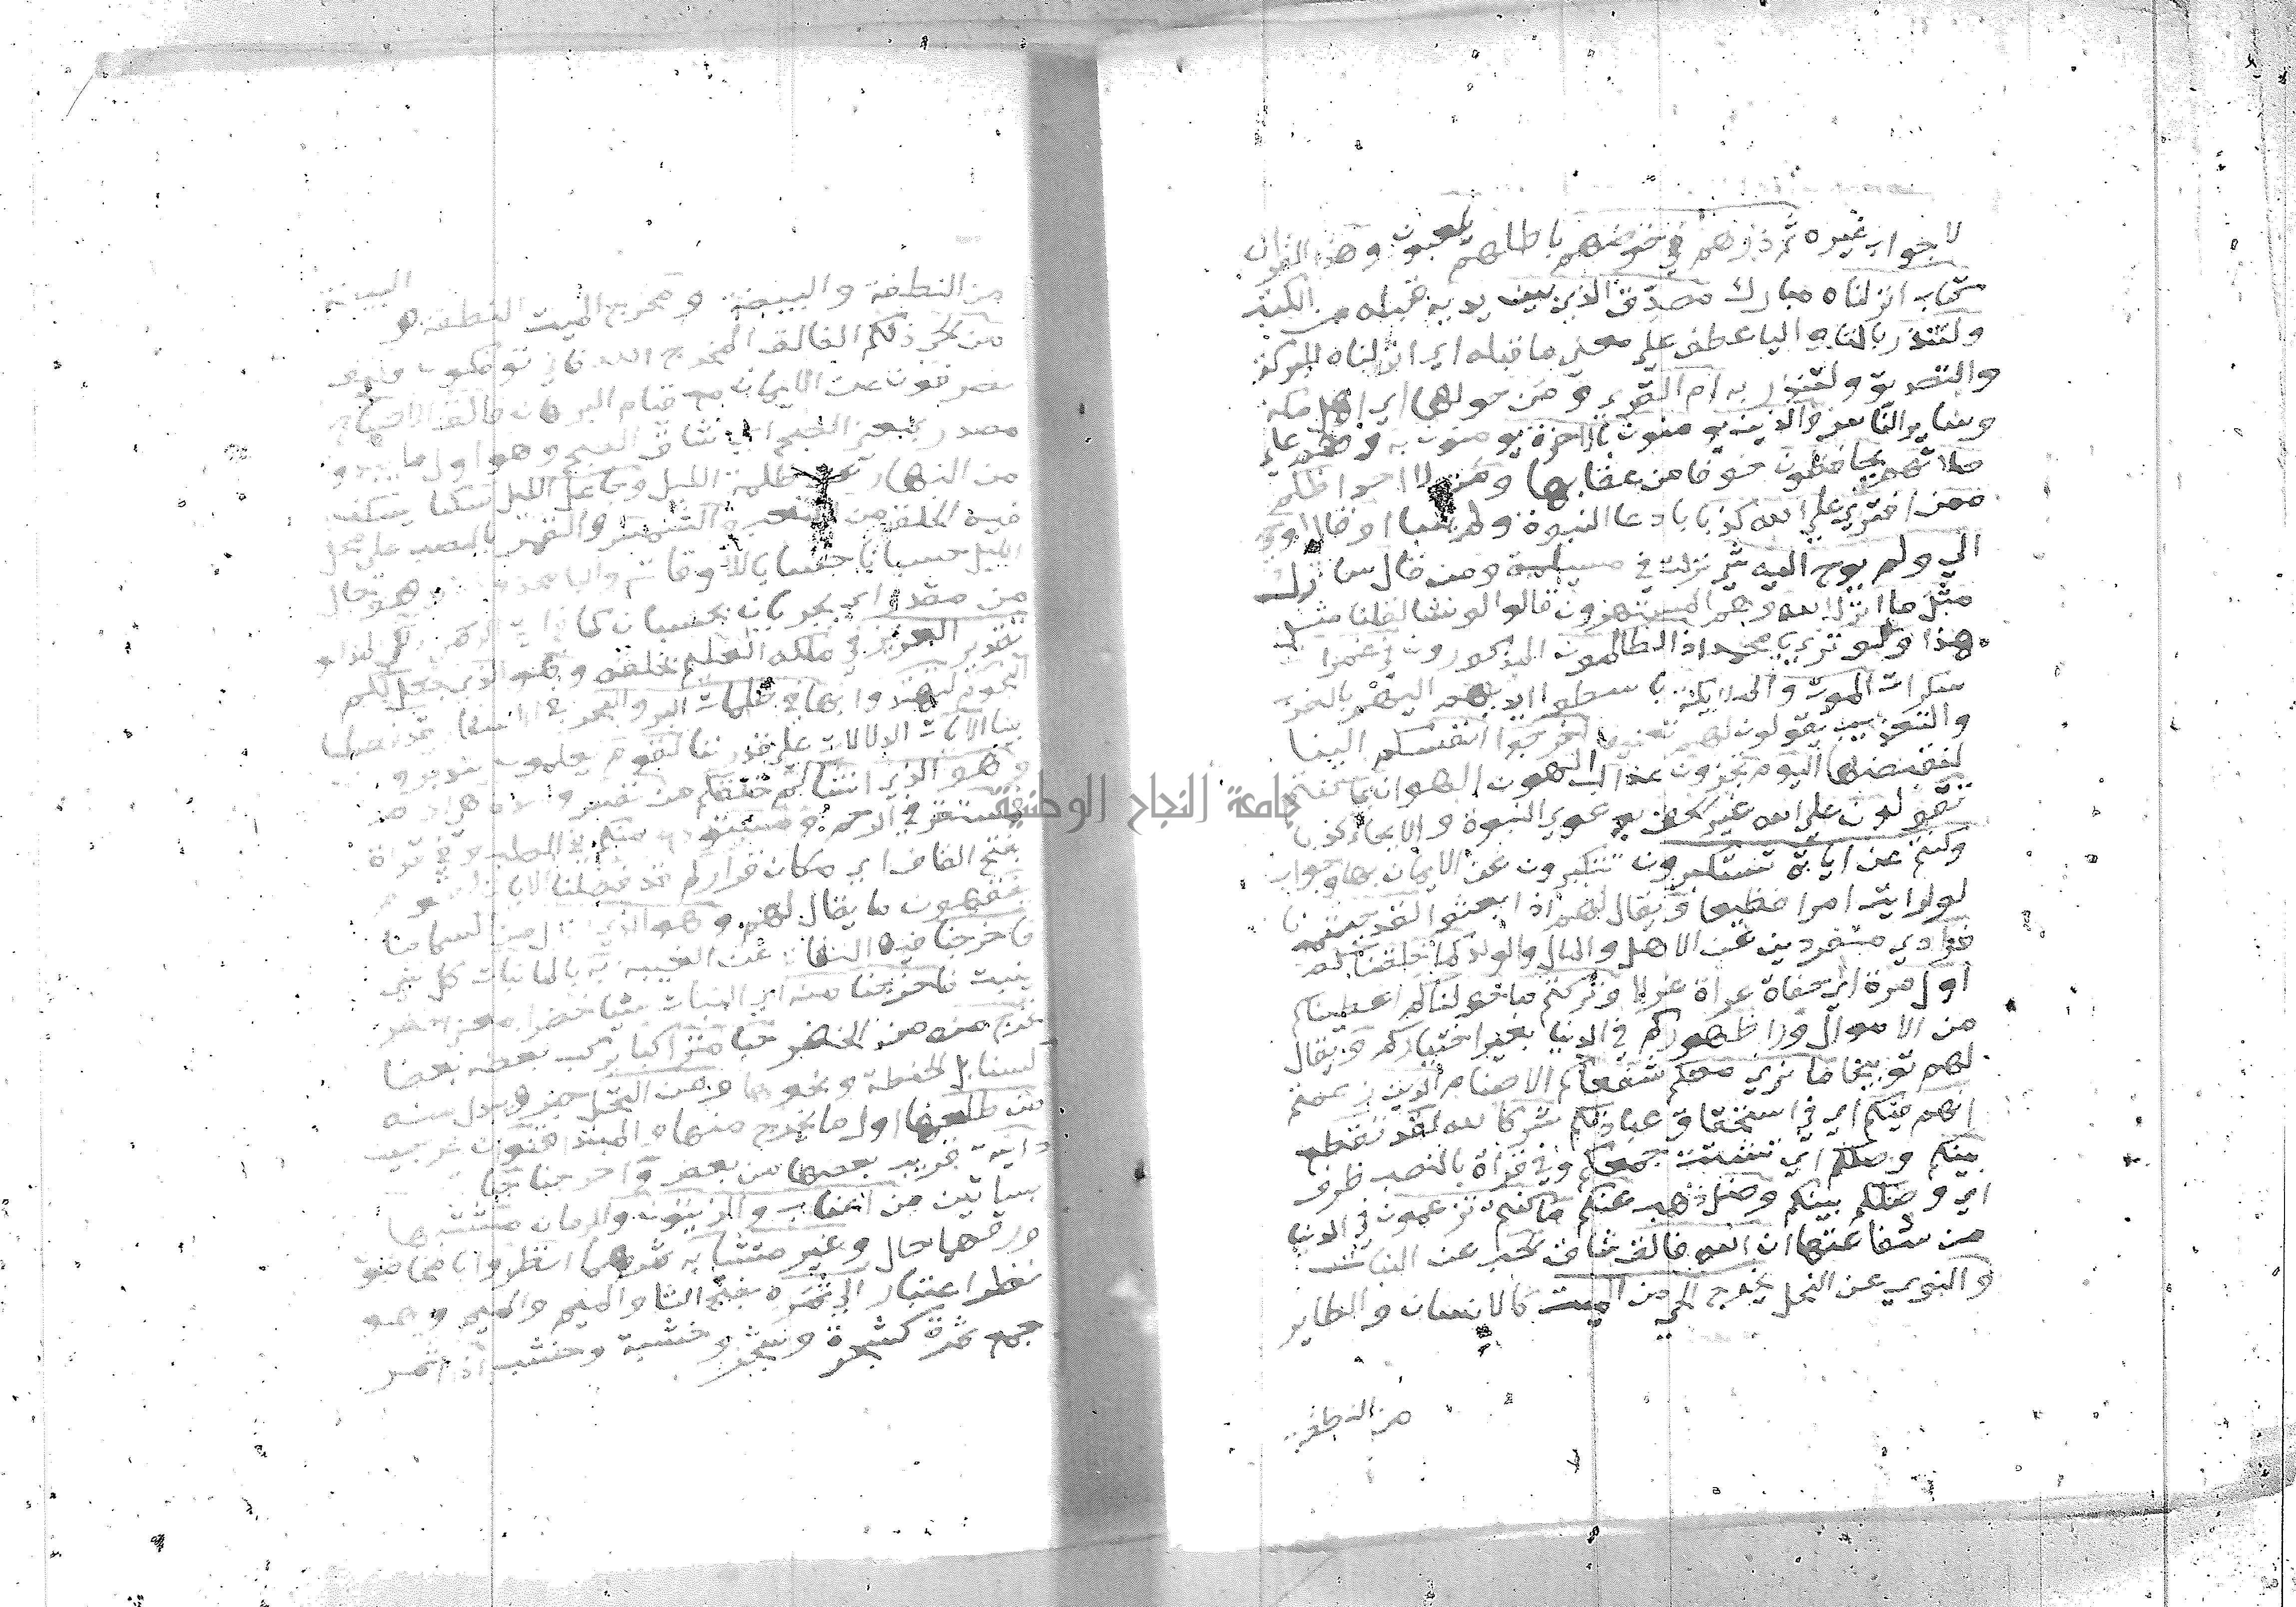 لا جواب غيره ثم ذرهم في خوضهم باطلهم يلعبون وهذا القران
كتاب انزلناه مبارك مصدق الذي بين يديه قبله من الكتب
ولتنذر بالتا واليا عطف علي معني ما قبله اي انزلناه للبركة
والتصديق ولتنذر به ام القري ومن حولها اي اهل مكة
وساير الناس والذين يومنون بالاخرة يومنون به وهم علي
صلاتهم يحافظون خوفا من عقابها ومن لا احد اظلم
ممن افتري علي الله كذبا بادعا النبوة ولم ينبا او قال اوحي
الي ولم يوح اليه شي نزلت في مسيلمة ومن قال سانزل
مثل ما انزل الله وهم المستهزون قالوا لو نشا لقلنا مثل
هذا ولو تري يا محمد اذ الظالمون المذكورون في غمرا
سكرات الموت والملايكة باسطوا ايديهم اليهم بالضرب
والتعذيب يقولون لهم تعنيفا اخرجوا انفسكم الينا
لنقبضها اليوم تجزون عذاب الهون الهوان بما كنتم
تقولون علي الله غير الحق بدعوي النبوة والايحا كذبا
وكنتم عن اياته تستكبرون تتكبرون عن الايمان بها وجواب
لو لرايت امرا فظيعا ويقال لهم اذا بعثوا لقد جيتمونا
فرادي منفردين عن الاهل والمال والولد كما خلقناكم
اول مرة اي حفاة عراة غرلا وتركتم ما خولناكم اعطيناكم
من الاموال ورا ظهوركم في الدنيا بغير اختياركم ويقال
لهم توبيخا ما نري معكم شفعاكم الاصنام الذين زعمتم
انهم فيكم اي في استحقاق عبادتكم شركا لله لقد تقطع
بينكم وصلكم اي تشتت جمعكم وفي قراة بالنصب ظرف
اي وصلكم بينكم وضل ذهب عنكم ما كنتم تزعمون في الدنيا
من شفاعتها ان الله فالق شاق الحب عن النبات
والنوي عن النخل يخرج الحي من الميت كالانسان والطاير
من النطفة
من النطفة والبيضة ومخرج الميت النطفة والبيضة
من الحي ذلكم الفالق المخرج الله فاني توفكون فكيف
تصرفون عن الايمان مع قيام البرهان فالق الاصباح
مصدر بمعني الصبح اي شاق الصبح وهو اول ما يبدو
من النهار عن ظلمة الليل وجاعل الليل سكنا يسكن
فيه الخلق من التعب والشمس والقمر بالنصب علي محل
الليل حسبانا حسابا للاوقات والبا محذوفة وهو حال
من مقدر اي يجريان بحسبان كما
تقدير العزيز في ملكه العليم بخلقه وهو الذي جعل لكم
النجوم لتهتدوا بها في ظلمات البر والبحر في الاسفار قد فصلنا
بينا الايات الدلالات علي قدرتنا لقوم يعلمون يتدبرون
وهو الذي انشاكم خلقكم من نفس واحدة هي ادم
فمستقر في الرحم ومستودع منكم في الصلب وفي قراة
بفتح القاف اي مكان قرار لكم قد فصلنا الايات لقوم
يفقهون ما يقال لهم وهو الذي انزل من السما ما
فاخرجنا فيه التفات عن الغيبة به بالما نبات كل شي
ينبت فاخرجنا منه اي النبات شيا خضرا بمعني اخضر
نخرج منه من الخضر حبا متراكبا يركب بعضه بعضا
كسنابل الحنطة ونحوها ومن النخل خبر ويبدل منه
من طلعها اول ما يخرج منها والمبتدا قنوان عراجين
دانية قريب بعضها من بعض واخرجنا به جنات
بساتين من اعناب والزيتون والرمان مشتبها
ورقهما حال وغير متشابه ثمرهما انظروا يا مخاطبون
نظر اعتبار الي ثمره بفتح الثا والميم والميم وهو
جمع ثمرة كشجرة وشجر وخشبة وخشب اذا اثمر
جامعة النجاح الوطنية